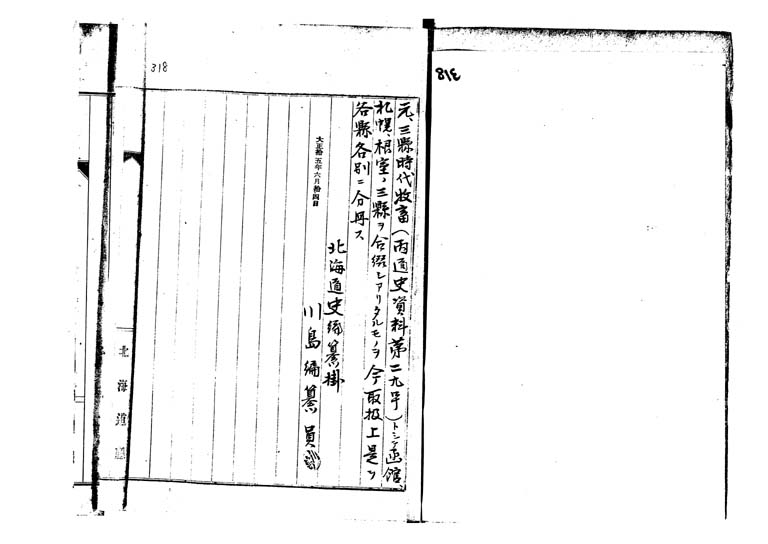 318
元、三縣時代牧畜(丙道史資料第二九号)トシテ函館、
札幌、根室、三縣ヲ合綴シアリタルモノヲ今取扱上是ヲ
各縣各別ニ分冊ス
大正拾五年六月拾四日
北海道史編纂掛
川島編纂員
北海道廳
318